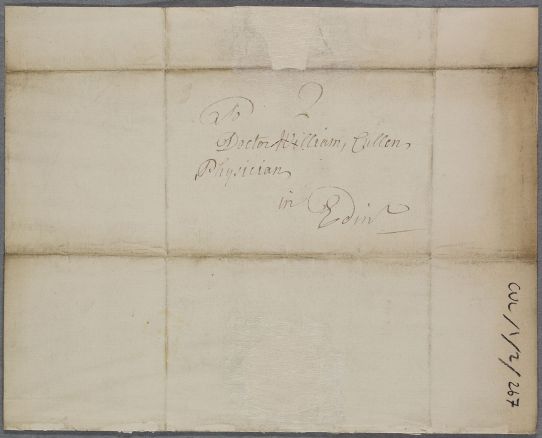 2
To
Doctor William Cullen
Physician
in Edinr
CUL/1/2/267